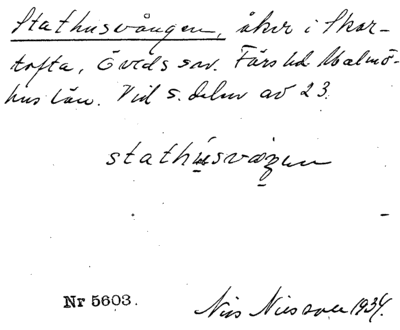 Stathusvången, åker i Skar-
tofta, Öveds sn. Färs hd Malmö-
hus län. Vid s. delen av 23.
stathúsvåŋen
Nr 5603.
Nils Nilsson 1934.